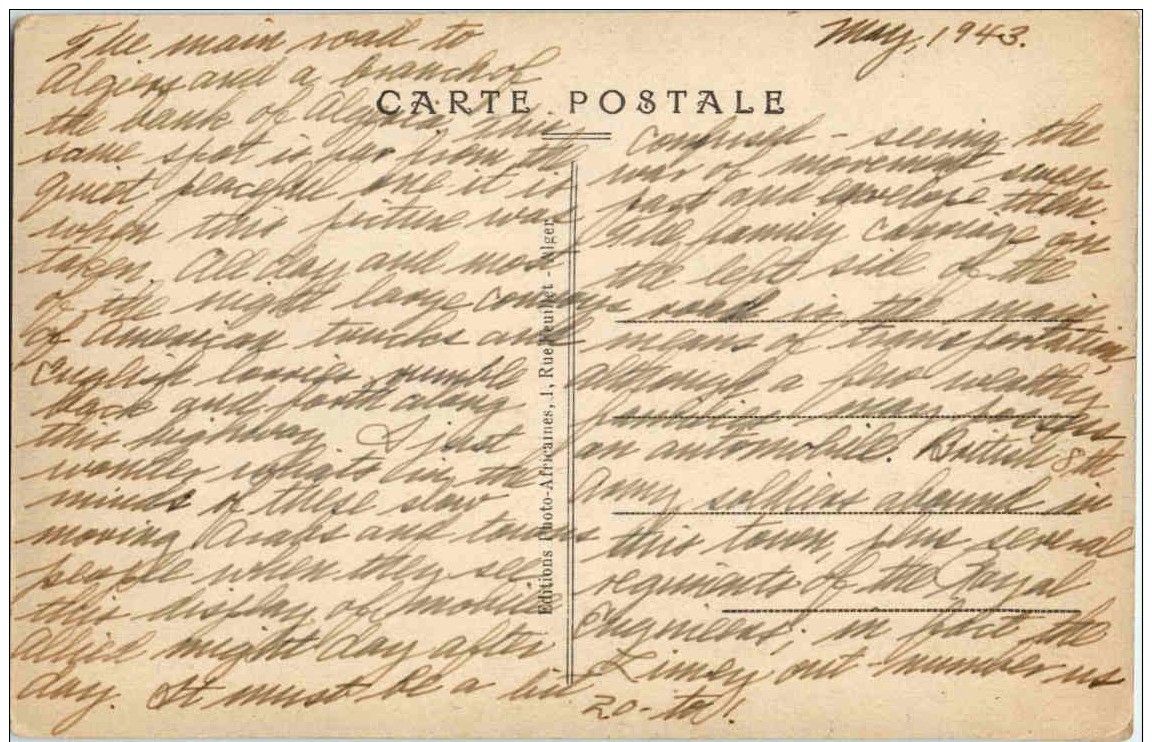 May, 1943.
CARTE POSTALE
The main road to
Algiers and a branch of
the bank of Algeria, this
same spot is far from the
quiet peaceful one it is
when this picture was
taken. All day and most
of the night large convoys
of American trucks and
English lorries rumble
back and forth along
this highway. I just
wonder what's in the
minds of these slow
moving Arabs and towns
people when they see
this display of mobile
Allied might day after
day. It must be a bit
confused - seeing the
war of movement sweep
past and envelope them.
The family carriage on
the left side of the
road is the main
means of transportation,
although a few wealthy
families may possess
an automobile. British 8th
Army soldiers abound in
this town, plus several
regiments of the Royal
Engineers; in fact the
Limey out-number us
20-to 1.
Editions Photo-Africaines, 1, Rue Feuillet - Alger